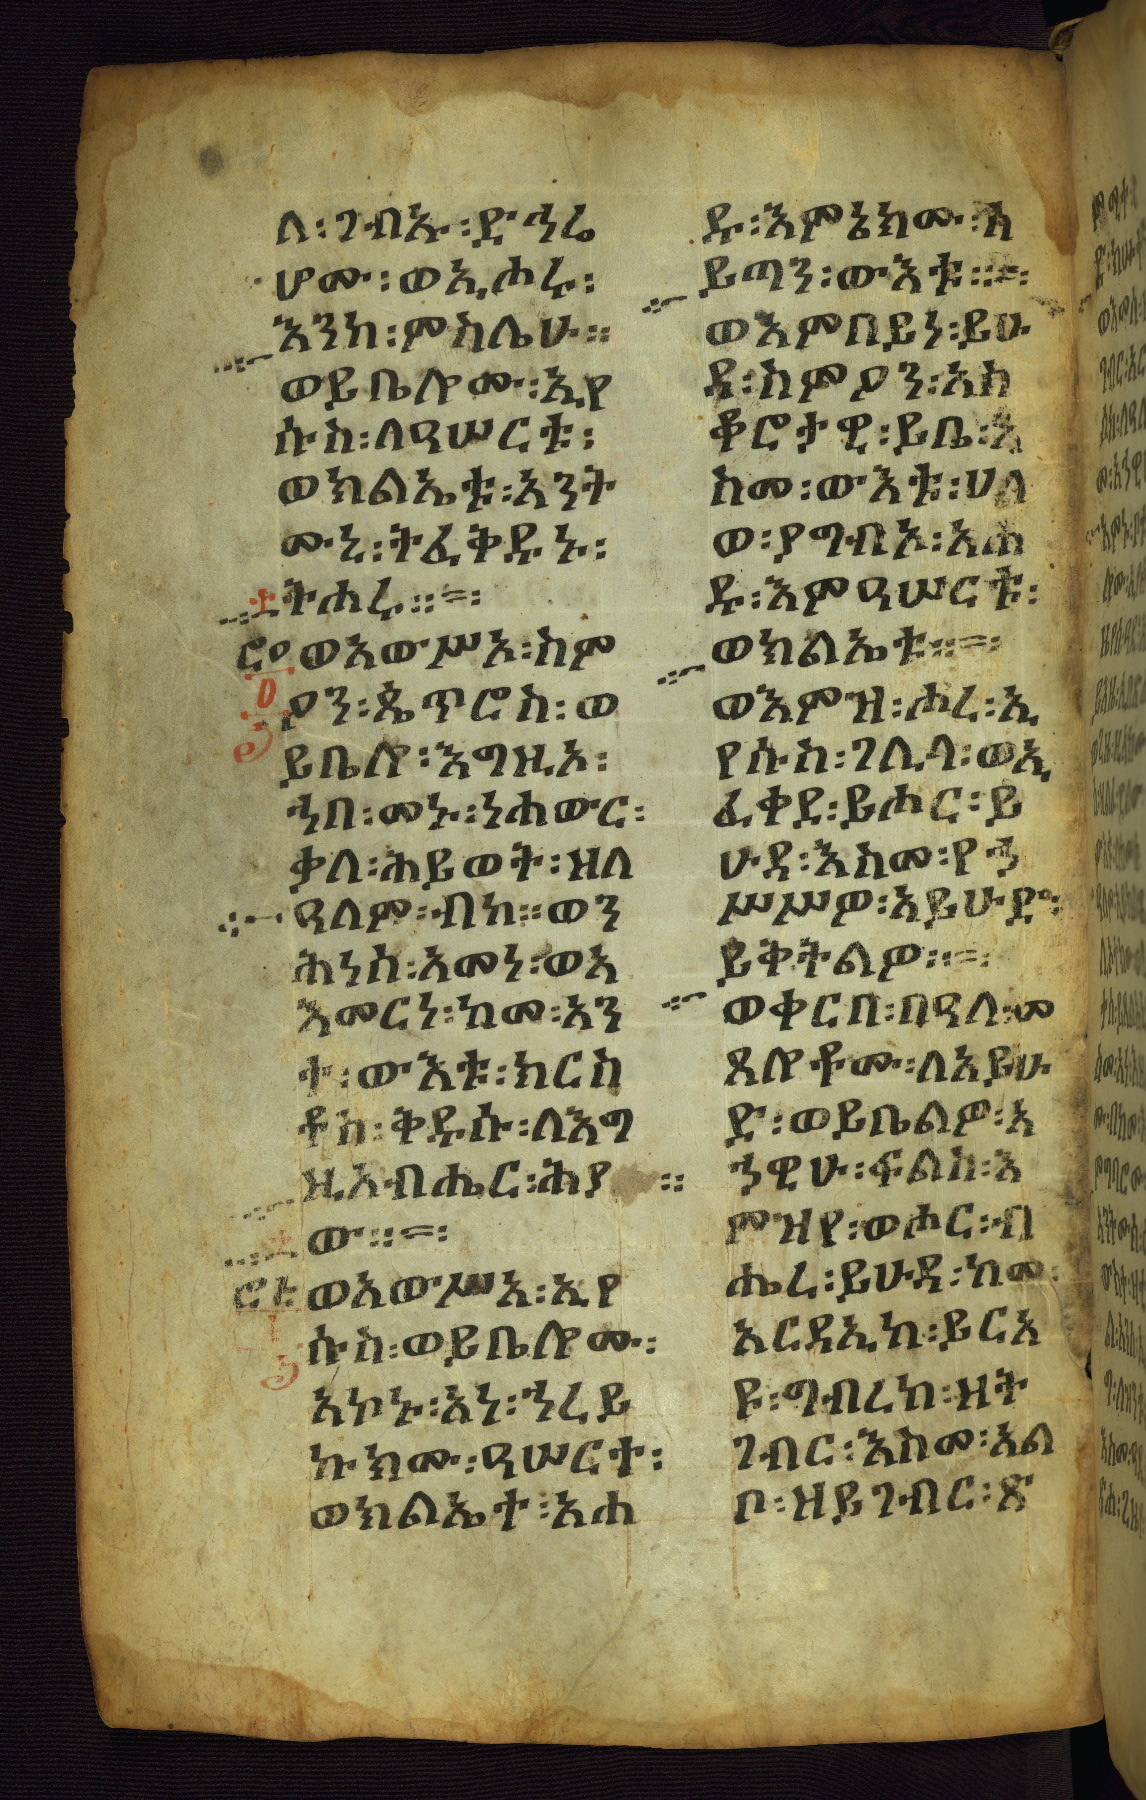 ለ፡ገብኡ፡ድኅሬ
ሆሙ፡ወኢሖሩ፡
እንከ፡ምስሌሁ።
ወይቤሎሙ፡ኢየ
ሱስ፡ለዓሠርቱ፡
ወክልኤቱ፡አንት
ሙኒ፡ትፈቅዱኑ፡
ትሐሩ።=፡
ወአውሥአ፡ስም
ዖን፡ጴጥሮስ፡ወ
ይቤሎ፡እግዚኦ፡
ኀበ፡መኑ፡ነሐውር፡
ቃለ፡ሕይወት፡ዘለ
ዓለም፡ብከ።ወን
ሕነሰ፡አመነ፡ወአ
እመርነ፡ከመ፡አን
ተ፡ውእቱ፡ክርስ
ቶስ፡ቅዱሱ፡ለእግ
ዚአብሔር፡ሕያ
ው።=፡
ወአውሥአ፡ኢየ
ሱስ፡ወይቤሎሙ፡
አኮኑ፡አነ፡ኀረይ
ኩክሙ፡ዓሠርተ፡
ወክልኤተ፡አሐ
ዱ፡እምኔክሙ፡ሰ
ይጣን፡ውእቱ።=፡
ወእምበይነ፡ይሁ
ዳ፡ስምዖን፡አስ
ቆሮታዊ፡ይቤ፡እ
ስመ፡ውእቱ፡ሀለ
ወ፡ያግብኦ፡አሐ
ዱ፡እምዓሠርቱ፡
ወክልኤቱ።=፡
ወእምዝ፡ሖረ፡ኢ
የሱስ፡ገሊላ፡ወኢ
ፈቀደ፡ይሖር፡ይ
ሁዳ፡እስመ፡የኀ
ሥሥዎ፡አይሁድ፡
ይቅትልዎ።=፡
ወቀርበ፡በዓለ፡መ
ጸሎቶሙ፡ለአይሁ
ድ፡ወይቤልዎ፡አ
ኀዊሁ፡ፍልስ፡እ
ምዝየ፡ወሖር፡ብ
ሔረ፡ይሁዳ፡ከመ፡
አርዳኢከ፡ይርአ
ዩ፡ግብረከ፡ዘት
ገብር፡እስመ፡አል
ቦ፡ዘይገብር፡ጽ